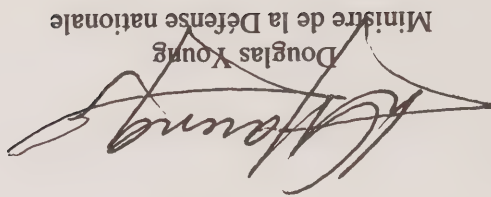 Douglas Young
Ministre de la Défense nationale